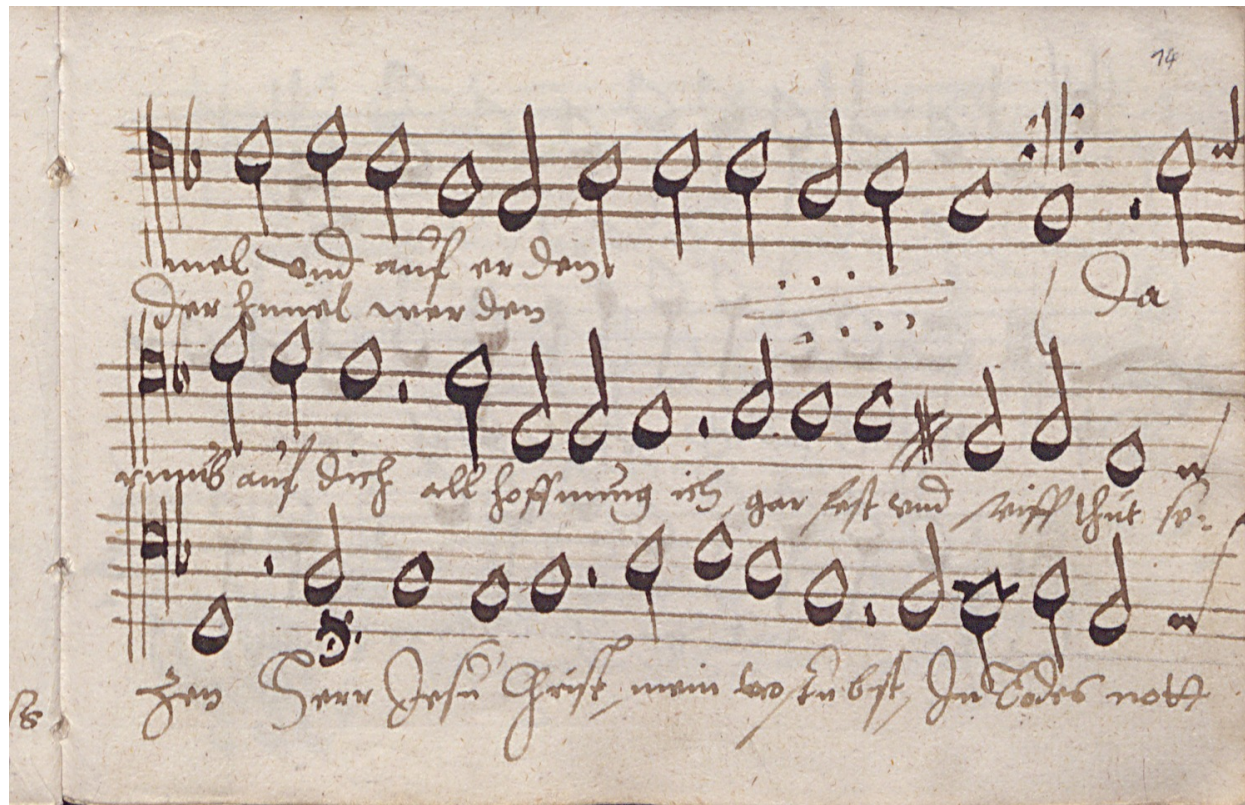 14
mel vnd auf er den
der himel wer den
Da
rumb auf dich all hoffnung ich gar fest vnd thut se-
tzen Herr Jesu Christ, mein trost du bist, In Todes nott